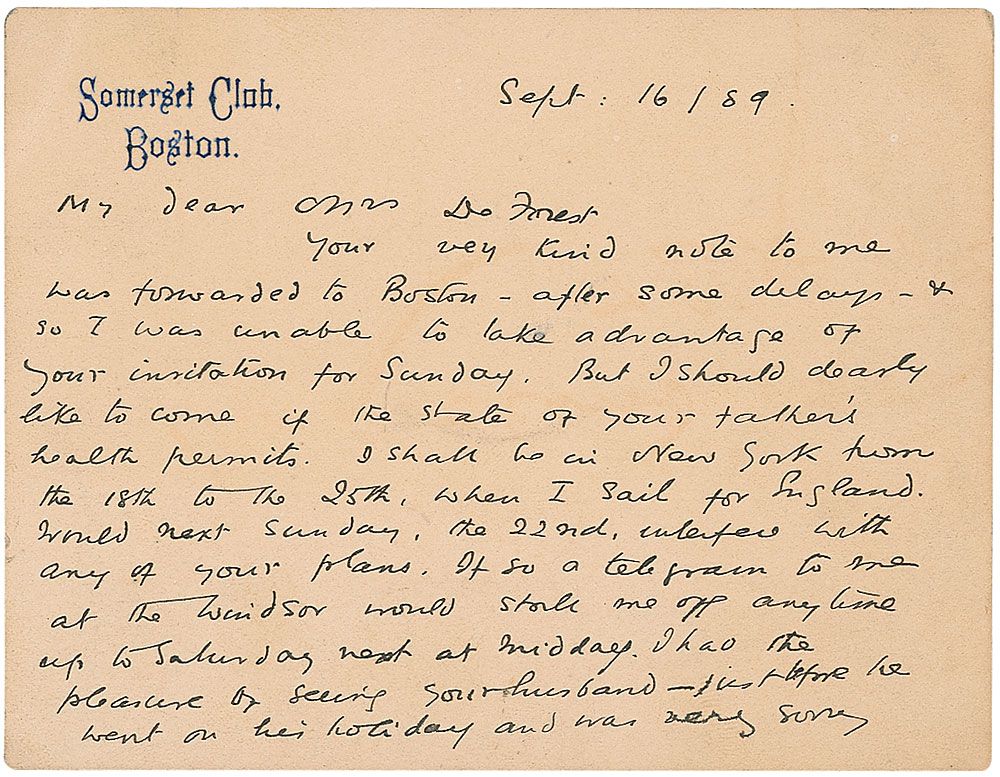 Somerset Club,
Boston.
Sept: 16/89.
My dear Mrs De Forest
Your very kind note to me
was forwarded to Boston - after some delays - &
so I was unable to take advantage of
your invitation for Sunday. But I should dearly
like to come if the state of your father's
health permits. I shall be in New York from
the 18th to the 25th, when I sail for England.
Would next Sunday, the 22nd, interfere with
any of your plans. If so a telegram to me
at the Windsor would me off any time
up to Saturday next at midday. I had the
pleasure of seeing your husband - just before he
went on his holiday and was very sorry